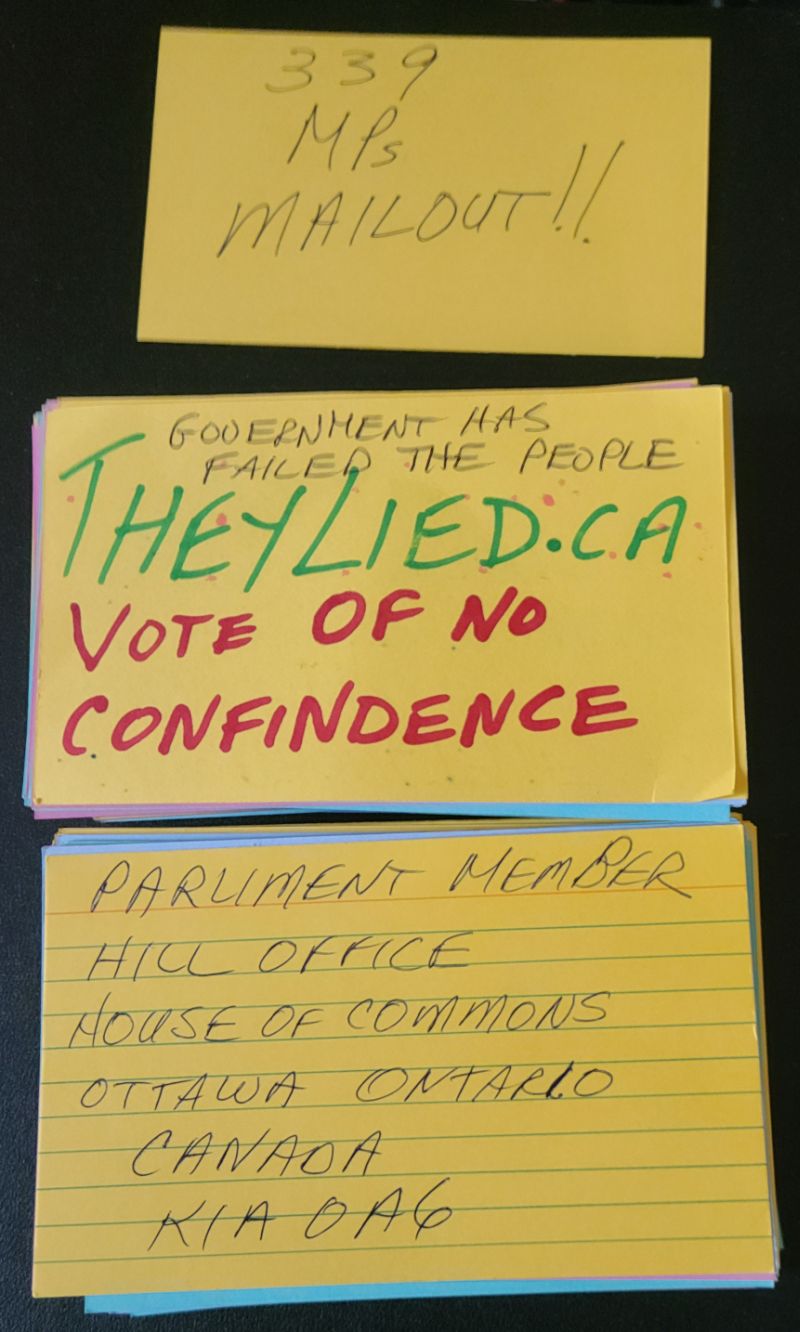 339
MPs
MAILOUT!!
GOVERNMENT HAS
FAILED THE PEOPLE
THEYLIED.CA
VOTE OF NO
CONFINDENCE
PARLIMENT MEMBER
HILL OFFICE
HOUSE OF COMMONS
OTTAWA ONTARIO
CANADA
K1A 0A6